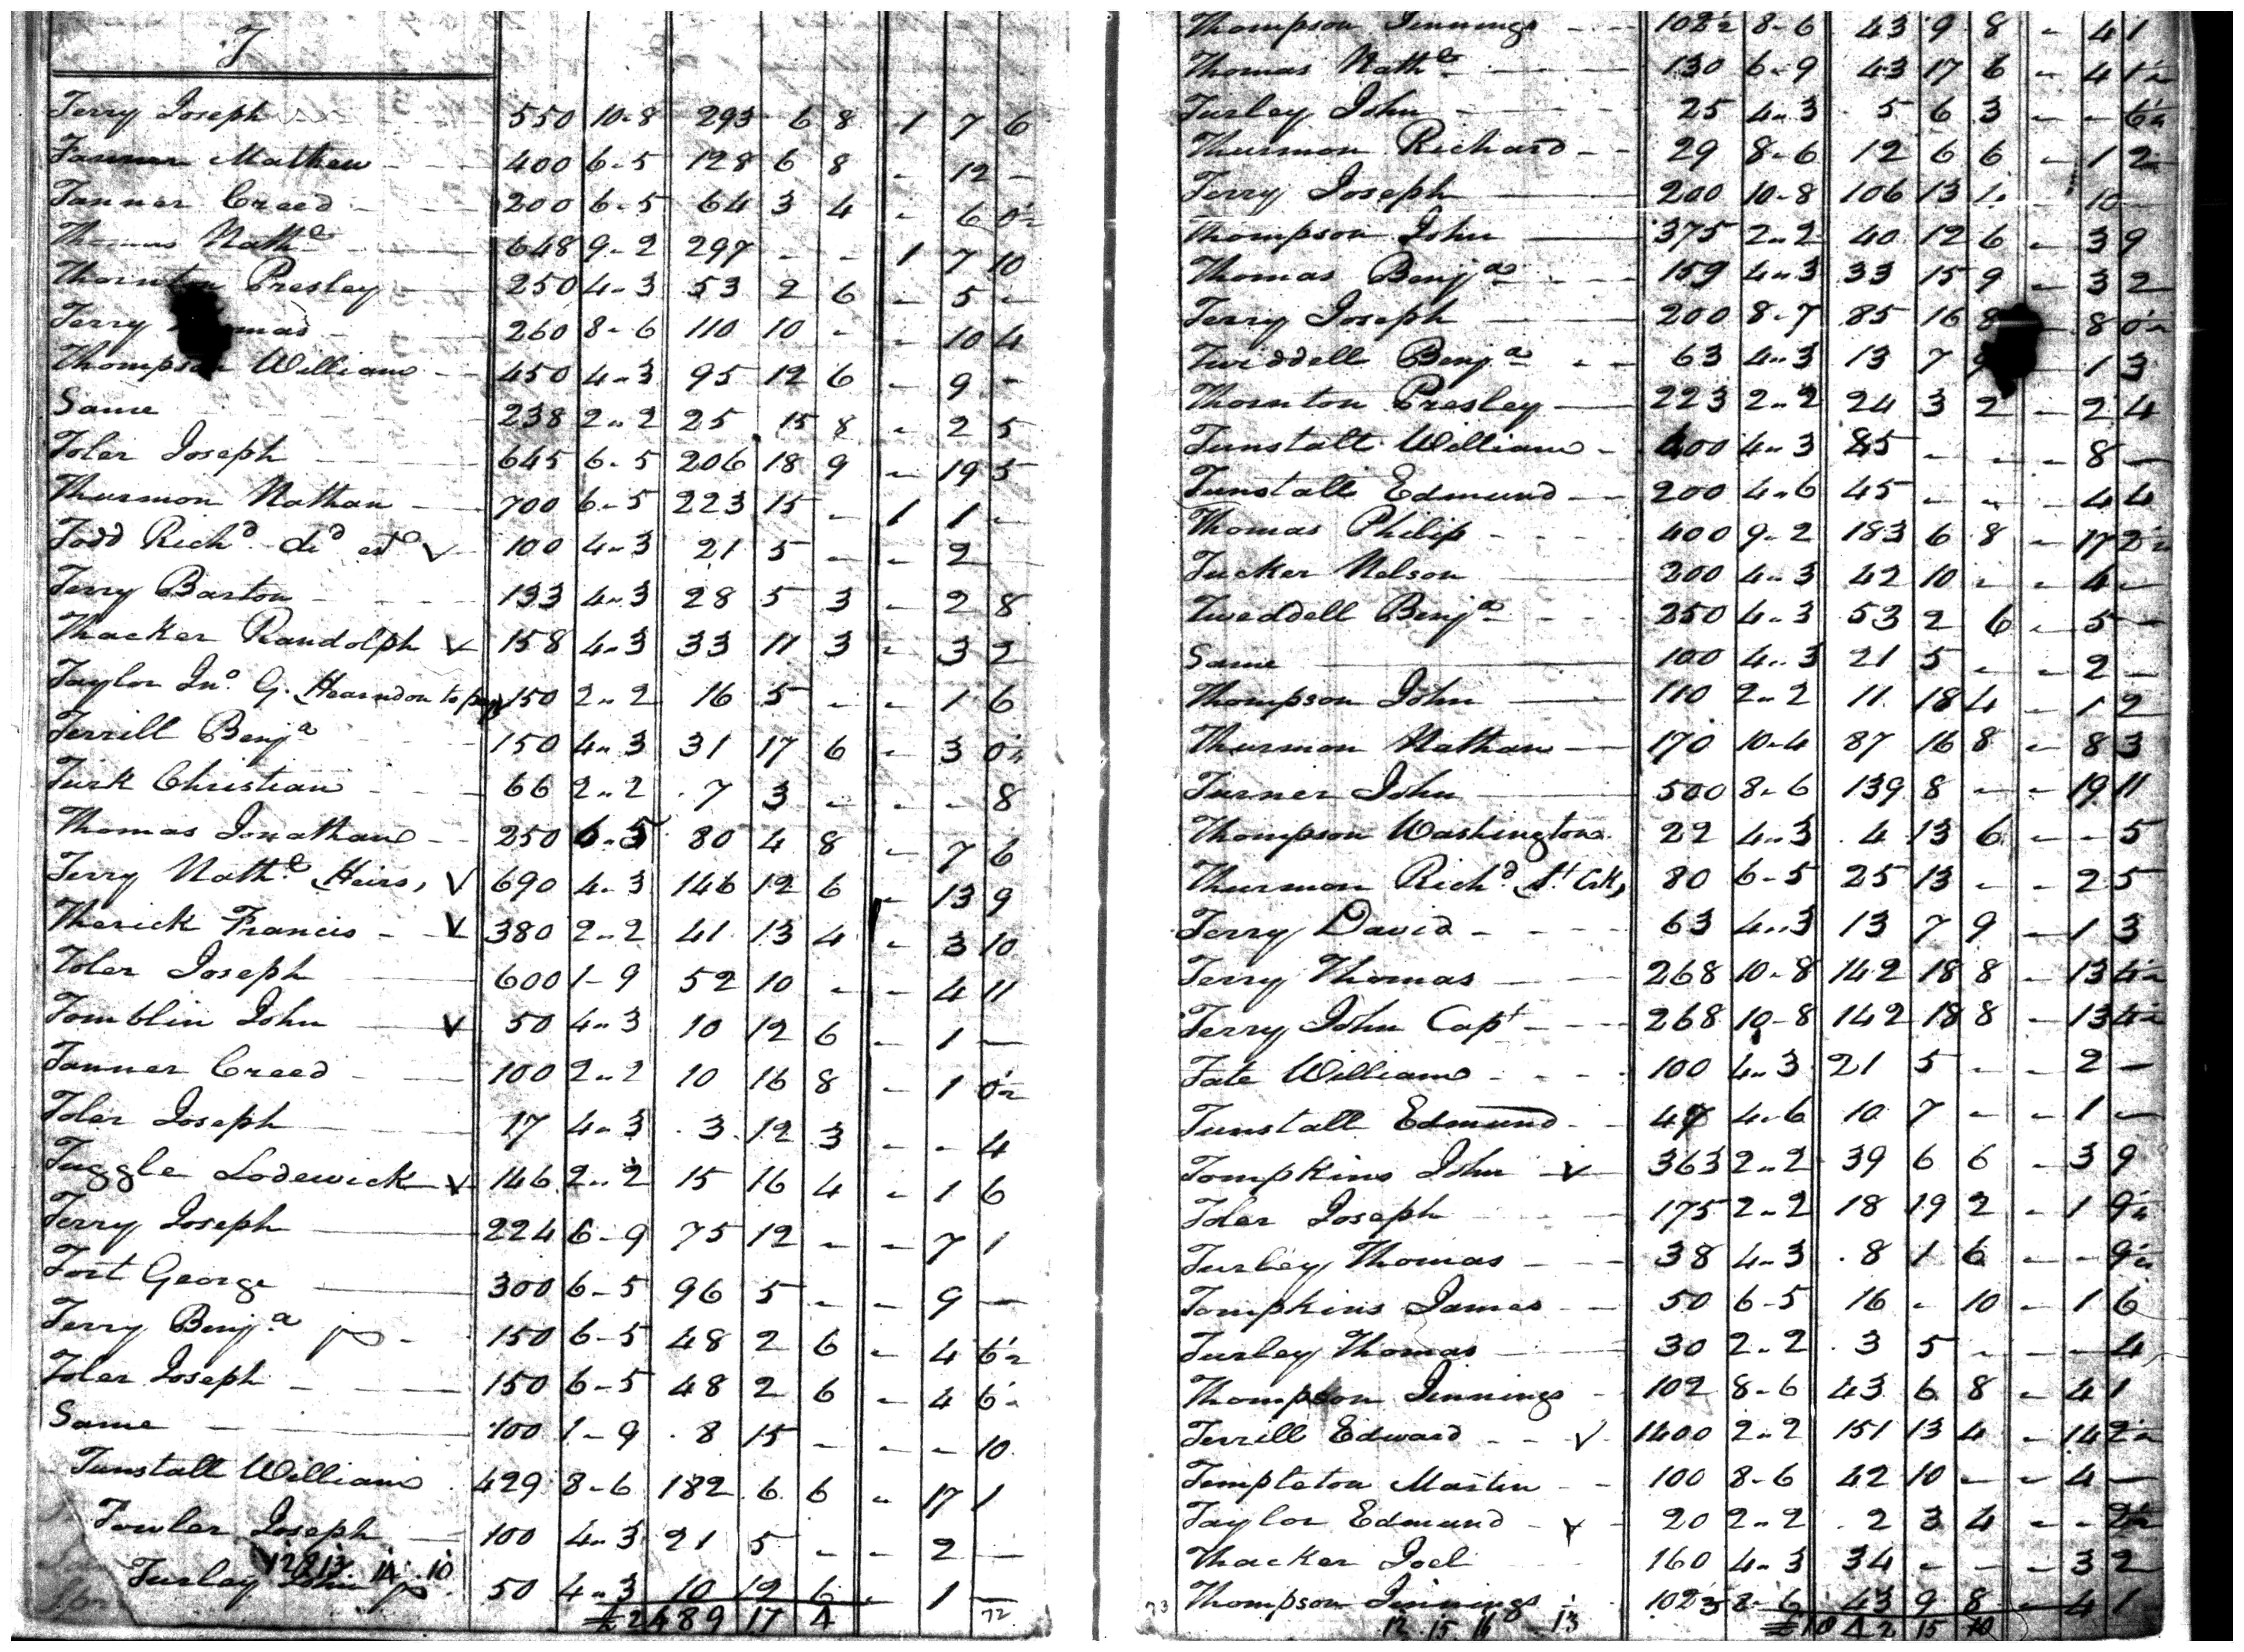 T
Terry Joseph 550 10-8 293 6 8 1 7 6
Tanner Mathew 400 6-5 128 6 8 - 12 -
Tanner Creed 200 6-5 64 3 4 - 6 0½
Thomas Nathl 648 9-2 297 - - 1 7 10
Thornton Presley 250 4-3 53 2 6 - 5 -
Terry 260 8-6 110 10 - - 10 4
Thompson William 450 4-3 95 12 6 - 9 -
Same 238 2-2 25 15 8 - 2 5
Toler Joseph 645 6-5 206 18 9 - 19 5
Thurmon Nathan 700 6-5 223 15 - 1 1 -
Todd Richd decd estd V 100 4-3 21 5 - - 2
Terry Barton 133 4-3 28 5 3 - 2 8
Thacker Randolph V 158 4-3 33 11 3 - 3 2
Taylor Jno. G. Hearndon to pay 150 2-2 16 5 - - 1 6
Terrill Benja 150 4-3 31 17 6 - 3 0½
Turk Christian 66 2-2 7 3 - - - 8
Thomas Jonathan 250 6-5 80 4 8 - 7 6
Terry Nathl Heirs, V 690 4-3 146 12 6 - 13 9
Therick Francis - V 380 2-2 41 13 4 - 3 10
Toler Joseph 600 1-9 52 10 - - 4 11
Tomblin John V 50 4-3 10 12 6 - 1 -
Tanner Creed 100 2-2 10 16 8 - 1 0½
Toler Joseph 17 4-3 3 12 3 - - 4
Tuggle Lodewick V 146 2-2 15 16 4 - 1 6
Terry Joseph 224 6-9 75 12 - - 7 1
Fort George 300 6-5 96 5 - - 9 -
Terry Benja 150 6-5 48 2 6 - 4 6½
Toler Joseph 150 6-5 48 2 6 - 4 6½
Same 100 1-9 8 15 - - - 10
Tunstall William 429 8-6 182 6 6 - 17 1
Fowler Joseph 100 4-3 21 5 - - 2 -
Turley John 50 4-3 10 12 6 - 1 -
£2489 17 4
72
Thompson Jennings 102½ 8-6 43 9 8 - 4 1
Thomas Nathl 130 6-9 43 17 6 - 4 1½
Turley John 25 4-3 5 6 3 - - 6½
Thurmon Richard 29 8-6 12 6 6 - 1 2
Terry Joseph 200 10-8 106 13 - 10 -
Thompson John 375 2-2 40 12 6 - 3 9
Thomas Benja 159 4-3 33 15 9 - 3 2
Terry Joseph 200 8-7 85 16 8 - 8 0½
Twiddell Benja 63 4-3 13 7 9 - 1 3
Thornton Presley 223 2-2 24 3 2 - 2 4
Tunstall William 400 4-3 85 - - - 8 -
Tunstall Edmund 200 4-6 45 - - 4 4
Thomas Philip 400 9-2 183 6 8 - 17 2½
Tucker Nelson 200 4-3 42 10 - - 4 -
Tweddell Benja 250 4-3 53 2 6 - 5 -
Same 100 4-3 21 5 - - 2 -
Thompson John 110 2-2 11 18 4 - 1 2
Thurmon Nathan 170 10-4 87 16 8 - 8 3
Turner John 500 8-6 139 8 - - 19 11
Thompson Washington 22 4-3 4 13 6 - - 5
Thurmon Richd St Crk, 80 6-5 25 13 - - 2 5
Terry David 63 4-3 13 7 9 - 1 3
Terry Thomas 268 10-8 142 18 8 - 13 4½
Terry John Capt 268 10-8 142 18 8 - 13 4½
Tate William 100 4-3 21 5 - - 2 -
Tunstall Edmund 47 4-6 10 7 - - 1 -
Tompkins John V 363 2-2 39 6 6 - 3 9
Toler Joseph 175 2-2 18 19 2 - 1 9½
Turley Thomas 38 4-3 8 1 6 - - 9½
Tompkins James 50 6-5 16 - 10 - 1 6
Turley Thomas 30 2-2 3 5 - - - 4
Thompson Jennings 102 8-6 43 6 8 - 4 1
Terrill Edward V 1400 2-2 151 13 4 - 14 2½
Templeton Martin 100 8-6 42 10 - - 4 -
Taylor Edmund V 20 2-2 2 3 4 - - 2½
Thacker Joel 160 4-3 34 - - - 3 2
Thompson Jennings 102 8-6 43 9 8 - 4 1
73
12 15 16 13
15 10